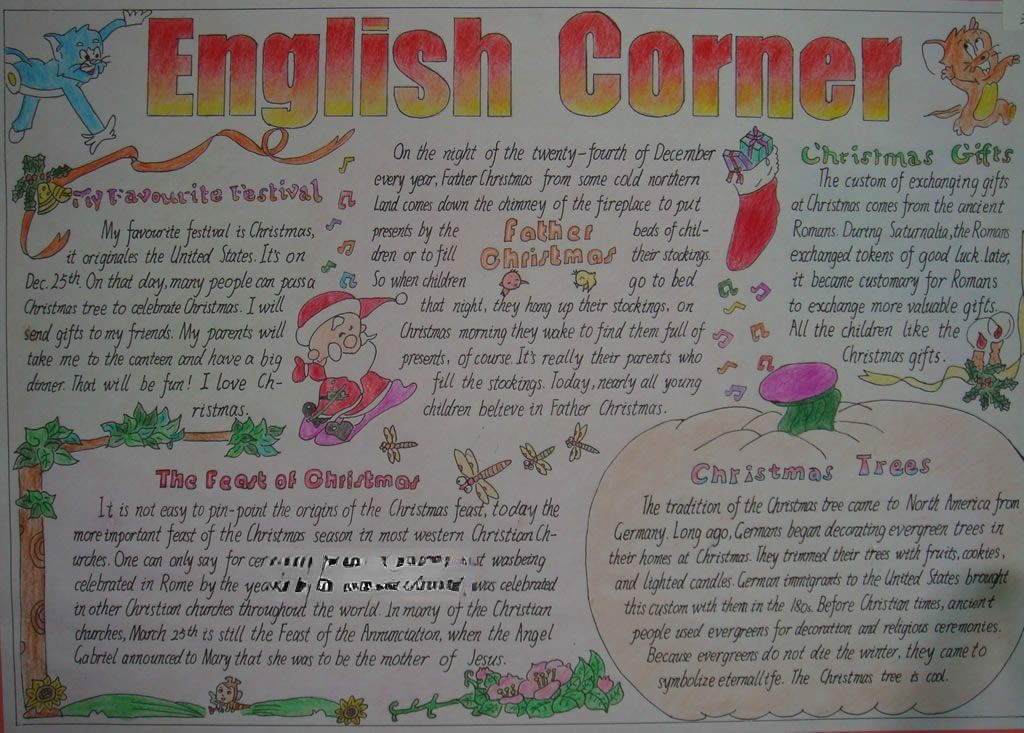 English Corner
My Favourite Festival
My favourite festival is Christmas,
it originales the United States. It's on
Dec. 25th. On that day, many people can pass a
Christmas tree to celebrate Christmas. I will
send gifts to my friends. My parents will
take me to the canteen and have a big
dinner. That will be fun! I love Ch-
ristmas.
On the night of the twenty-fourth of December
every year, Father Christmas from some cold northern
Land comes down the chimney of the fireplace to put
presents by the beds of chil-
dren or to fill their stockings.
So when children go to bed
Father
Christmas
that night, they hang up their stockings, on
Christmas morning they wake to find them full of
presents, of course. It's really their parents who
fill the stockings. Today, nearly all young
children believe in Father Christmas.
Christmas Gifts
The custom of exchanging gifts
at Christmas comes from the ancient
Romans. During Saturnalia, the Romans
exchanged tokens of good luck. Later,
it became customary for Romans
to exchange more valuable gifts.
All the children like the
Christmas gifts.
The Feast of Christmas
It is not easy to pin-point the origins of the Christmas feast, today the
more important feast of the Christmas season in most western Christian Ch-
urches. One can only say for cer wasbeing
celebrated in Rome by the yea was celebrated
in other Christian churches throughout the world. In many of the Christian
churches, March 25th is still the Feast of the Annunciation, when the Angel
Gabriel announced to Mary that she was to be the mother of Jesus.
Christmas Trees
The tradition of the Christmas tree came to North America from
Germany. Long ago, Germans began decorating evergreen trees in
their homes at Christmas. They trimmed their trees with fruits, cookies,
and lighted candles. German immigrants to the United States brought
this custom with them in the 180s. Before Christian times, ancient
people used evergreens for decoration and religious ceremonies.
Because evergreens do not die the winter, they came to
symbolize eternallife. The Christmas tree is cool.